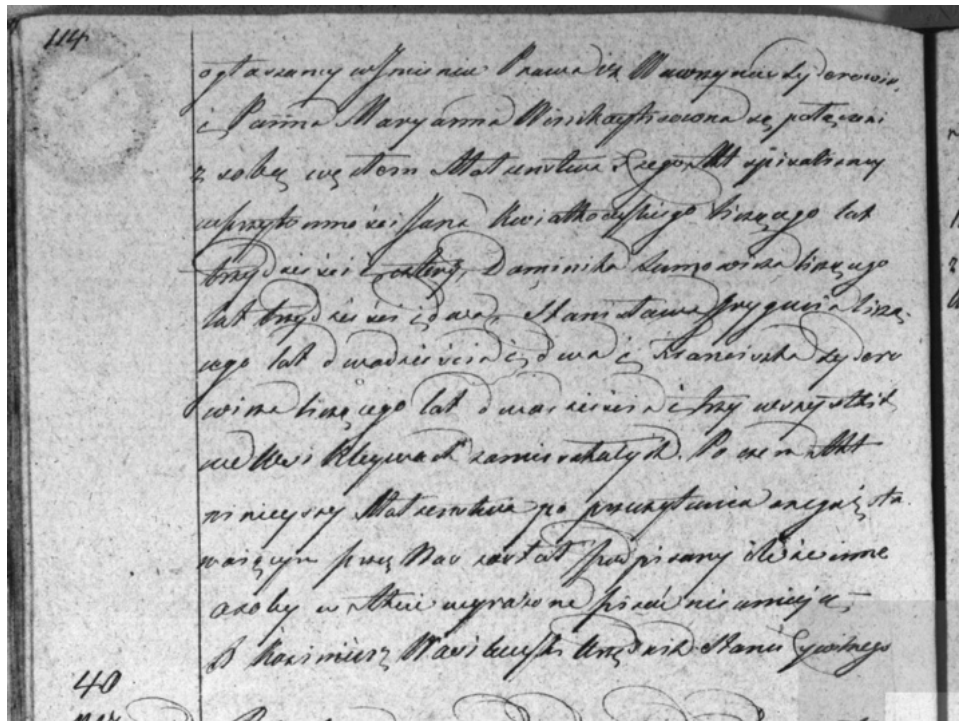 114
ogłaszamy w Jmieniu Prawa iż Wawrzyniec Zyderowic
i Panna Maryanna są połączeni
z sobą węzłem Małzenstwa czego Akt spisalismy
w przytomnosci Jana Kwiatkowskiego liczącego lat
trzydziesci cztery, Dominika liczącego
lat trzydziesci i dwa, Stanisława liczą
cego lat dwadziescia i dwa i Franciszka Zydero
wicza liczącego lat dwadziescia i trzy wszystkich
we Wsi Kleywach zamieszkałych. Po czem Akt
ninieyszy Małzenstwa po przeczytaniu onegoż sta
waiącym przez Nas został podpisany ile że inne
osoby w Akcie wyrażone pisać nie umieją
X Kazimierz Urzędnik Stanu Cywilnego
40